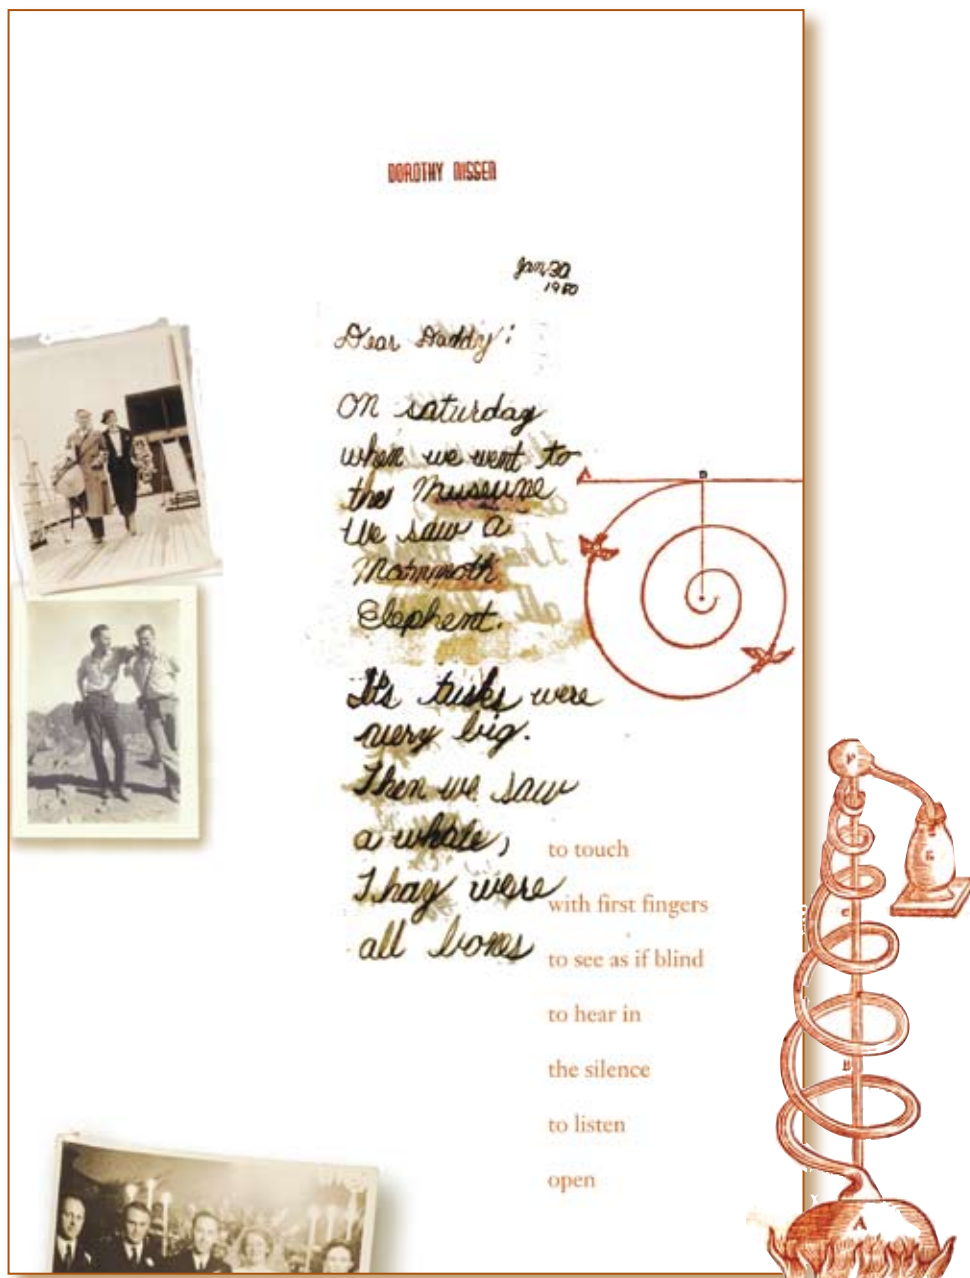 DOROTHY NISSEN
Jan 30
1950
Dear Daddy:
On saturday
when we went to
the Museume
We saw a
Mammoth
Elephent.
It's tusks were
very big.
Then we saw
a whale,
Thay were
all bones
to touch
with first fingers
to see as if blind
to hear in
the silence
to listen
open
A